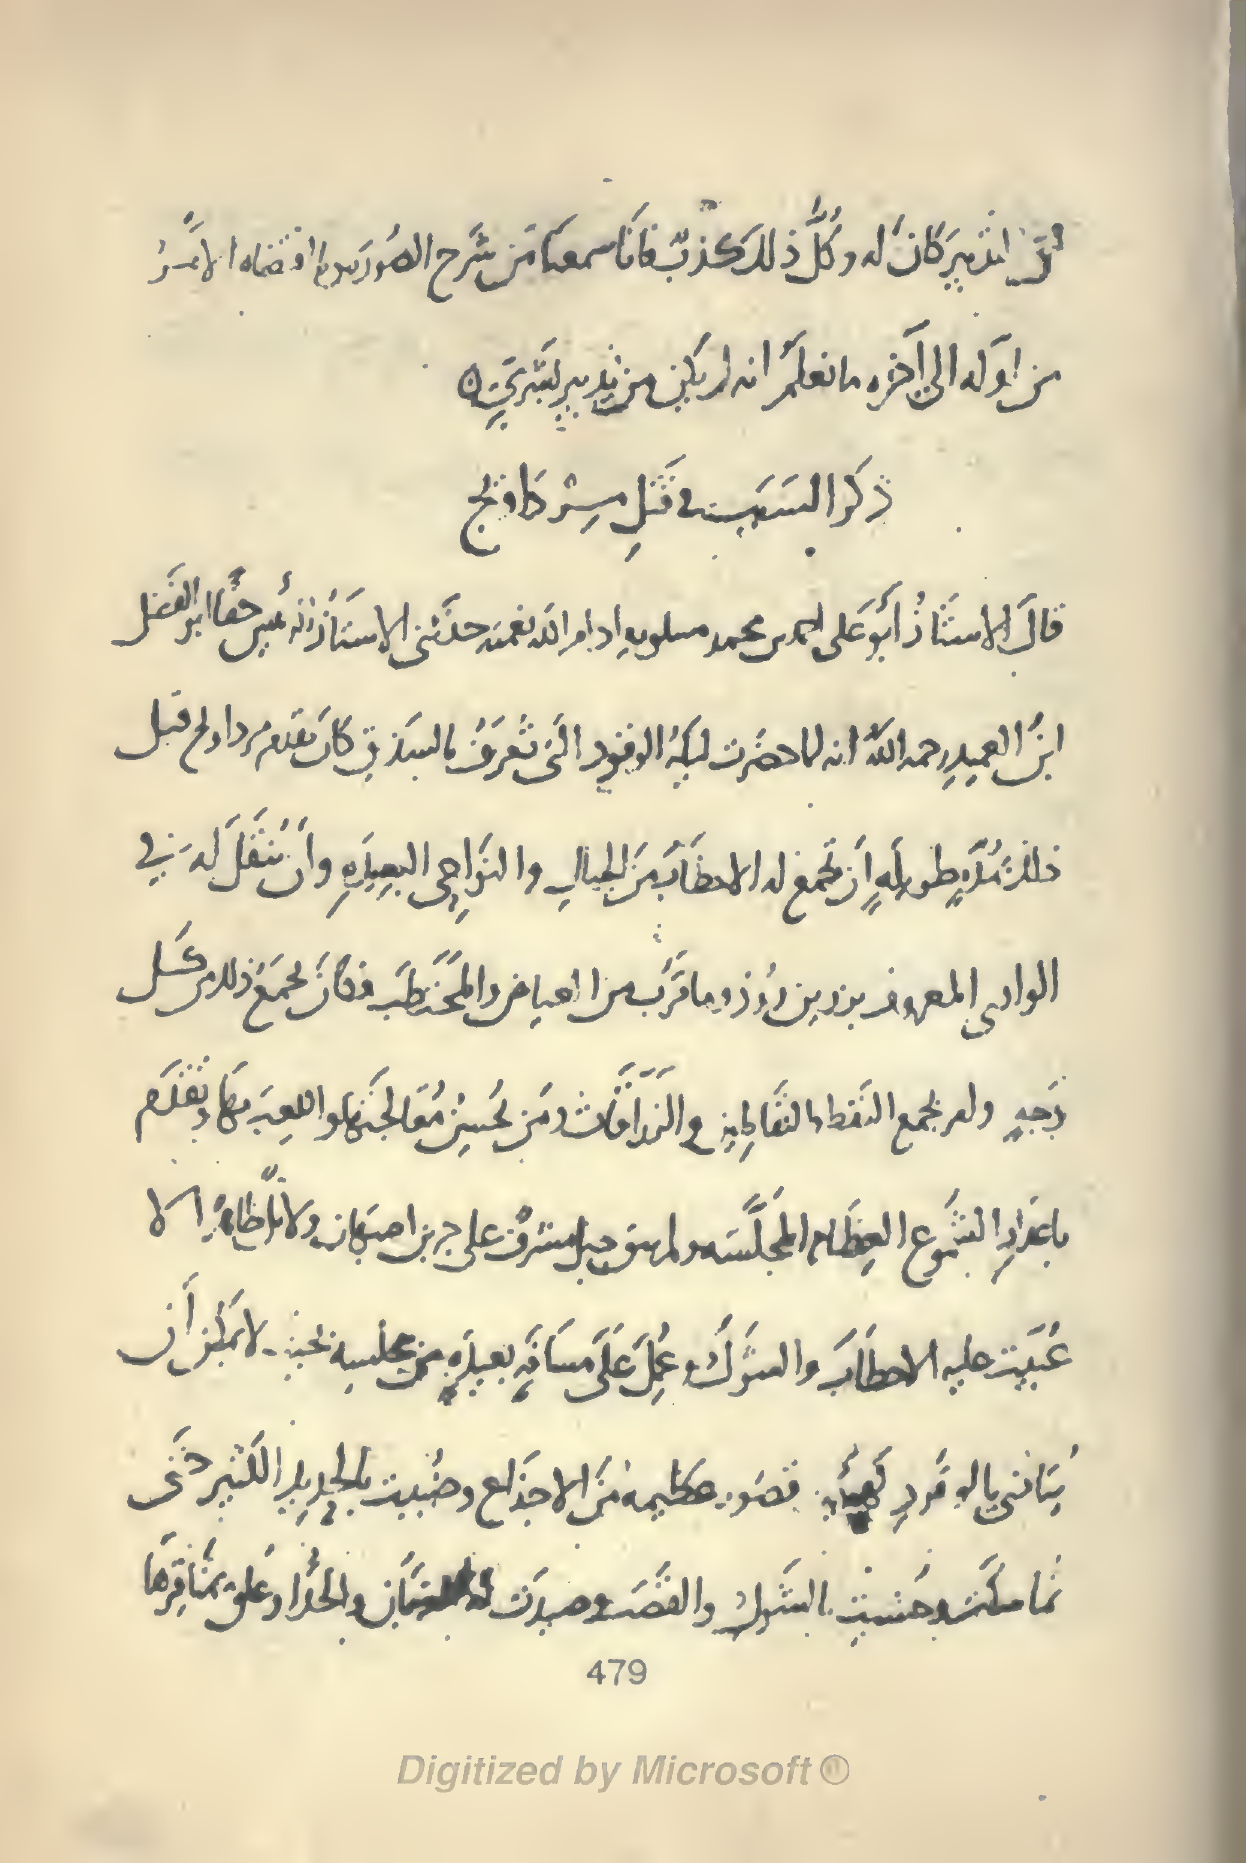 أنّ التدبير كان له وكلّ ذلك كذب فانا سمعنا من شرح الصورة الأمر
من اوّله الى آخره ما نعلم انه لم يكن من تدبير لبشريّ
ذكر السبب في قتل مرداويج
قال الاستاذ أبو علي احمد بن محمد مسكويه ادام الله نعمته حدّثني الاستاذ الرئيس حقّا ابو الفضل
ابن العميد رحمه الله انه لما حضرت ليلة الوقود التي تعرف بالسذق كان تقدم مرداويج قبل
ذلك بمدّة طويلة أن تجمع له الاحطاب من الجبال والنواحي البعيدة وأن تنقل له في
الوادي المعروف بزرين روذ وما قرب من الغياض والمحتطب فكان يجمع ذلك من كل
وجه ولم يجمع النفط والنفاطين والزرّاقات ومن يحسن معالجتها واللعب بها وتقدّم
باعداد الشموع العظام المجلسة ولم يبق جبل مشرف على جرين اصبهان ولا تل الا
عبّيت عليه الاحطاب والشوك وعمل على مسافة بعيدة من مجلسه بحيث لا يمكن أن
يتاذى بالوقود كهيأة قصور عظيمة من الاجذاع وضببت بالحديد الكثير حتى
تماسكت وحشيت بالشوك والقصب وصيدت والحدأ وعلق بمناقرها
479
Digitized by Microsoft ®